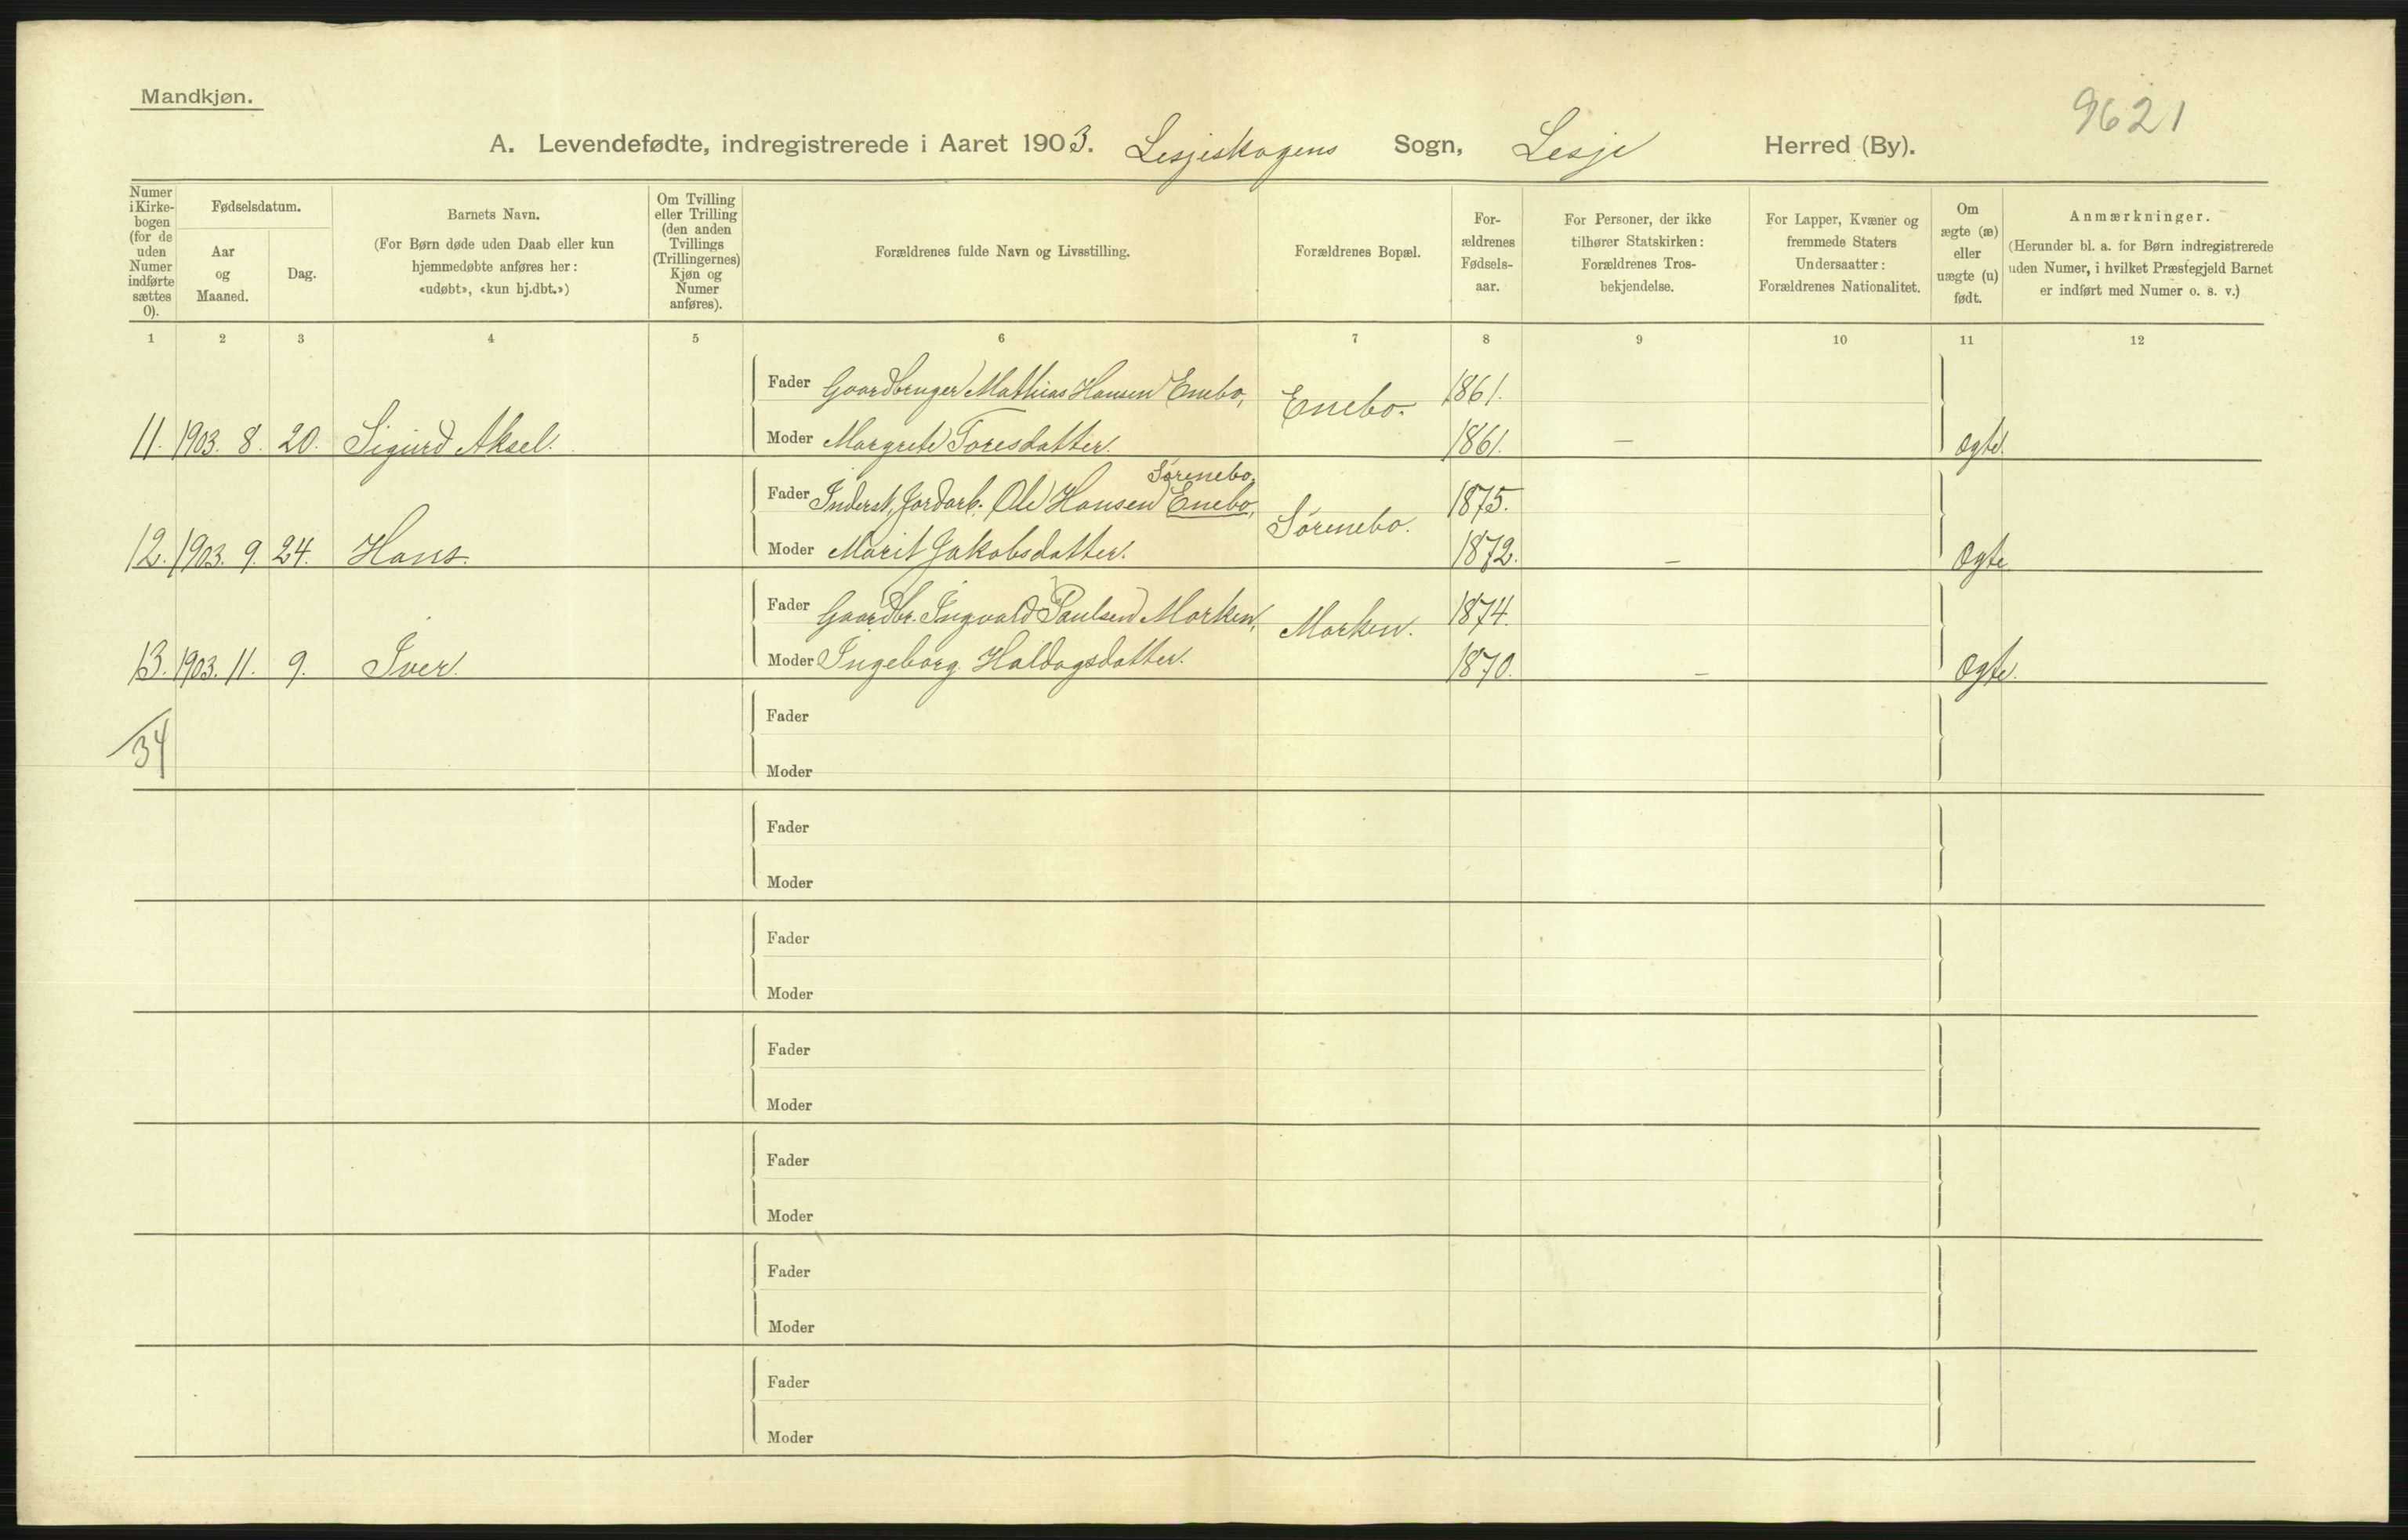 Mandkjøn.
9621
A. Levendefødte, indregistrerede i Aaret 1903. Lesjeskogens Sogn, Lesje Herred (By).
Numer i Kirke-bogen (for de uden Numer indførte sættes 0).
Fødselsdatum.
Aar og Maaned.
Dag.
Barnets Navn.
(For Børn døde uden Daab eller kun
hjemmedøbte anføres her:
«udøbt», «kun hj.dbt.»)
Om Tvilling
eller Trilling
(den anden
Tvillings
(Trillingernes)
Kjøn og
Numer
anføres).
Forældrenes fulde Navn og Livsstilling.
Forældrenes Bopæl.
For-
ældrenes
Fødsels-
aar.
For Personer, der ikke
tilhører Statskirken:
Forældrenes Tros-
bekjendelse.
For Lapper, Kvæner og
fremmede Staters
Undersaatter:
Forældrenes Nationalitet.
Om
ægte (æ)
eller
uægte (u)
født.
Anmærkninger.
(Herunder bl. a. for Børn indregistrerede
uden Numer, i hvilket Præstegjeld Barnet
er indført med Numer o. s. v.)
1 2 3 4 5 6 7 8 9 10 11 12
Fader Gaardbruger Mathias Hansen Enebo, Enebo. 1861.
11. 1903. 8. 20. Sigurd Aksel. Moder Margrete Toresdatter. 1861. – Ægte.
Sørenebo,
Fader Inderst, Jordarb. Ole Hansen Enebo, Sørenebo. 1875.
12. 1903. 9. 24. Hans. Moder Marit Jakobsdatter. 1872. – Ægte
Fader Gaardbr. Ingvald Paulsen Morken, Morken. 1874.
13. 1903. 11. 9. Iver. Moder Ingeborg Haldogsdatter. 1870. – Ægte.
Fader
34
Moder
Fader
Moder
Fader
Moder
Fader
Moder
Fader
Moder
Fader
Moder
Fader
Moder